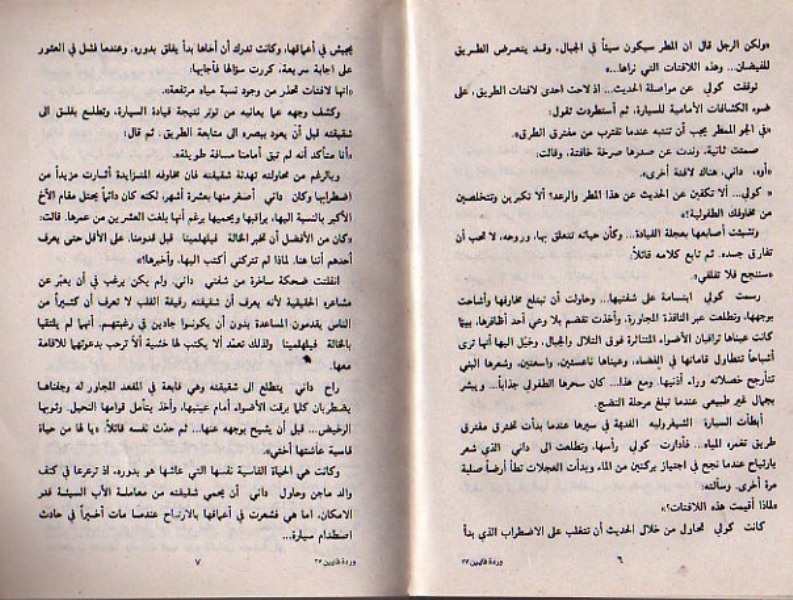 «ولكن الرجل قال ان المطر سيكون سيئاً في الجبال، وقد يتعرض الطريق
للفيضان... وهذه اللافتات التي نراها...»
توقفت كولي عن مواصلة الحديث... اذ لاحت احدى لافتات الطريق، على
ضوء الكشافات الأمامية للسيارة، ثم أستطردت تقول:
«في الجو الممطر يجب أن تنتبه عندما تقترب من مفترق الطرق».
صمتت ثانية، وندت عن صدرها صرخة خافتة، وقالت:
«أوه، داني، هناك لافتة أخرى».
« كولي... ألا تكفين عن الحديث عن هذا المطر والرعد؟ ألا تكبرين وتتخلصين
من مخاوفك الطفولية؟»
وتشبثت أصابعها بعجلة القيادة... وكأن حياته تتعلق بها، وروحه، لا تحب أن
تفارق جسده. ثم تابع كلامه قائلاً:
«ستنجح فلا تقلقي».
رسمت كولي ابتسامة على شفتيها... وحاولت أن تبتلع مخاوفها وأشاحت
بوجهها، وتطلعت عبر النافذة المجاورة، وأخذت تقضم بلا وعي أحد أظافرها، بينما
كانت عيناها تراقبان الأضواء المتناثرة فوق التلال والجبال، وخيّل اليها أنها ترى
أشباحاً تتطاول قاماتها في الفضاء، وعيناها ناعستين، واسعتين، وشعرها البني
تتأرجح خصلاته وراء أذنيها. ومع هذا... كان سحرها الطفولي جذاباً... ويبشر
بجمال غير طبيعي عندما تبلغ مرحلة النضج.
أبطأت السيارة الشيفروليه القديمة في سيرها عندما بدأت تخترق مفترق
طريق تغمره المياه... فأدارت كولي رأسها، وتطلعت الى داني الذي شعر
بارتياح عندما نجح في اجتياز بركتين من الماء، وبدأت العجلات تطأ أرضاً صلبة
مرة أخرى. وسألته:
«لماذا أقيمت هذه اللافتات؟»
كانت كولي تحاول من خلال الحديث أن تتغلب على الاضطراب الذي بدأ
٦
وردة قايين ٢٧
يجيش في أعماقها، وكانت تدرك أن أخاها بدأ يقلق بدوره، وعندما فشل في العثور
على اجابة سريعة، كررت سؤالها فأجابها:
«انها لافتات تحذر من وجود نسبة مياه مرتفعة».
وكشف وجهه عما يعانيه من توتر نتيجة قيادة السيارة، وتطلع بقلق الى
شقيقته قبل أن يعود ببصره الى متابعة الطريق، ثم قال:
«أنا متأكد أنه لم تبق أمامنا مسافة طويلة».
وبالرغم من محاولته تهدئة شقيقته فان مخاوفه المتزايدة أثارت مزيداً من
اضطرابها وكان داني أصغر منها بعشرة أشهر، لكنه كان دائماً يحتل مقام الأخ
الأكبر بالنسبة اليها، يراقبها ويحميها برغم أنها بلغت العشرين من عمرها. قالت:
«كان من الأفضل أن تخبر الخالة فيلهلمينا قبل قدومنا. على الأقل حتى يعرف
أحدهم أننا هنا. لماذا لم تتركني أكتب اليها، وأخبرها؟»
انفلتت ضحكة ساخرة من شفتي داني. ولم يكن يرغب في أن يعبّر عن
مشاعره الحقيقية لأنه يعرف أن شقيقته رقيقة القلب لا تعرف أن كثيراً من
الناس يقدمون المساعدة بدون أن يكونوا جادين في رغبتهم. أنهما لم يلتقيا
بالخالة فيلهلمينا ولذلك تعمّد ألا يكتب لها خشية ألا ترحب بدعوتها للاقامة
معها.
راح داني يتطلع الى شقيقته وهي قابعة في المقعد المجاور له وجفناها
يضطربان كلما برقت الأضواء أمام عينيها، وأخذ يتأمل قوامها النحيل، وثوبها
الرخيص... قبل أن يشيح بوجهه عنها... ثم حدّث نفسه قائلاً: «يا لها من حياة
قاسية عاشتها أختي».
وكانت هي الحياة القاسية نفسها التي عاشها هو بدوره، اذ ترعرعا في كنف
والد ماجن وحاول داني أن يحمي شقيقته من معاملة الأب السيئة قدر
الامكان، اما هي فشعرت في أعماقها بالارتياح عندما مات أخيراً في حادث
اصطدام سيارة...
٧
وردة قايين ٢٧